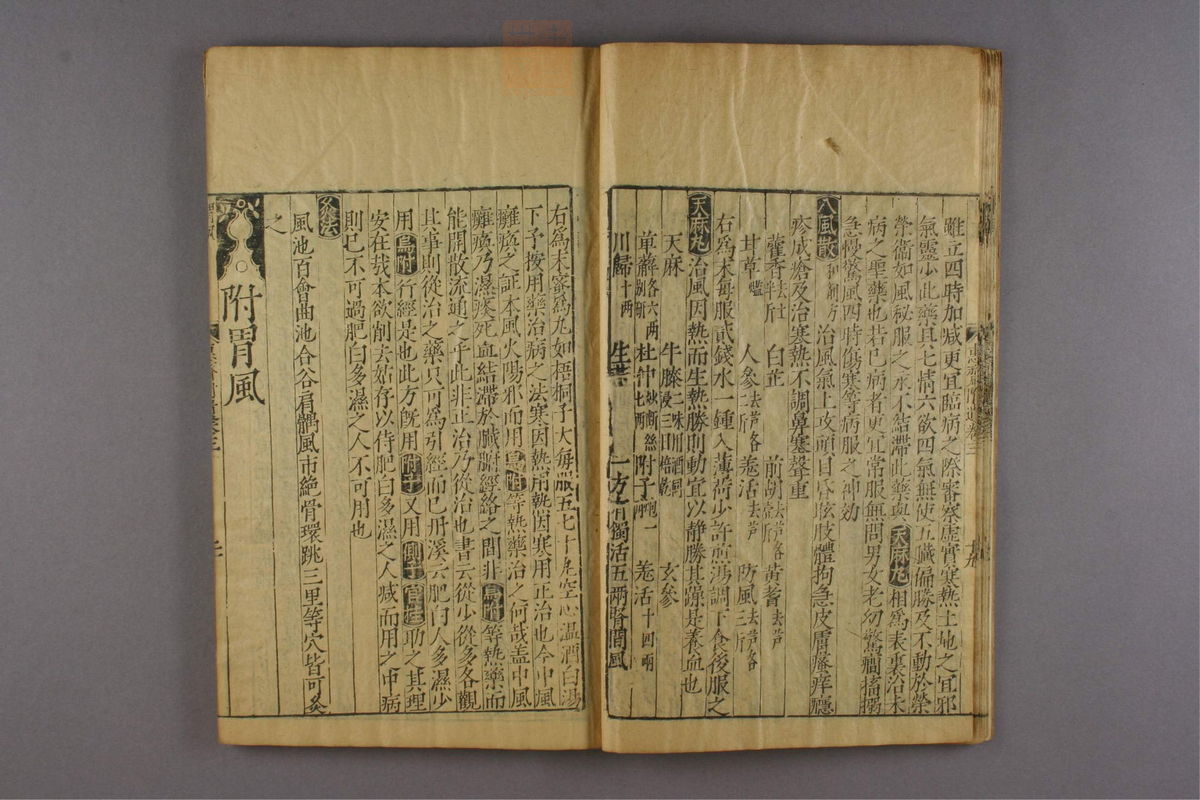 雖立四時加减更宜臨病之際審察虛實寒熱土地之宜邪
氣靈少此藥具七情六欲四氣無使五臟偏勝及不動於榮
榮衞如風秘服之永不結滯此藥與天麻丸相爲表裏治未
病之聖藥也若已病者更宜常服無問男女老幼驚癎搐搦
急慢驚風四時傷寒等病服之神効
八風散 治風氣上攻頭目昏眩肢體拘急皮膚瘙痒癮
疹成瘡及治寒熱不調鼻塞聲重
藿香去土半斤 白芷 前胡去芦各一斤 黃蓍去芦
甘草爁 人參去芦各二斤 羗活去芦 防風去芦各三斤
右爲末每服貳錢水一鍾入薄荷少許煎湯調下食後服之
天麻丸 治風因熱而生熱勝則動宜以靜勝其躁是養血也
天麻 牛膝二味用酒同浸三日焙乾 玄參
萆薢各六兩別研 杜仲七兩炒斷絲 附子炮一兩 羗活十四兩
川歸十兩 生 一方有獨活五兩腎間風
右爲末蜜爲丸如梧桐子大每服五七十丸空心溫酒白湯
下予按用藥治病之法寒因熱用熱因寒用正治也今中風
癱瘓之証本風火陽邪而用烏附等熱藥治之何哉盖中風
癱瘓乃濕痰死血結滯於臟腑經絡之間非烏附等熱藥而
能開散流通之乎此非正治乃從治也書云從少從多各觀
其事則從治之藥只可爲引經而已丹溪云肥白人多濕少
用烏附行經是也此方旣用附子又用側子官桂助之其理
安在哉本欲削去姑存以侍肥白多濕之人减而用之中病
則已不可過肥白多濕之人不可用也
灸法
風池百會曲池合谷肩髃風市絶骨環跳三里等穴皆可灸
之
附胃風